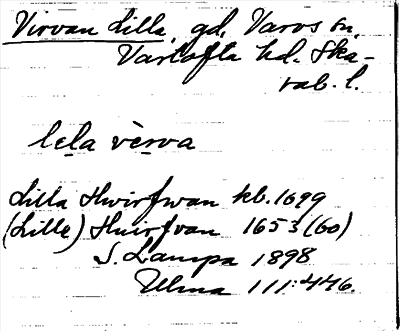 Virvan Lilla, gd, Varvs sn,
Vartofta hd. Ska-
rab. l.
lela verva
Lilla Hwirfwan kb. 1699
(Lille) Huirfvan 1653 (60)
S. Lampa 1898
Ulma 111:446.